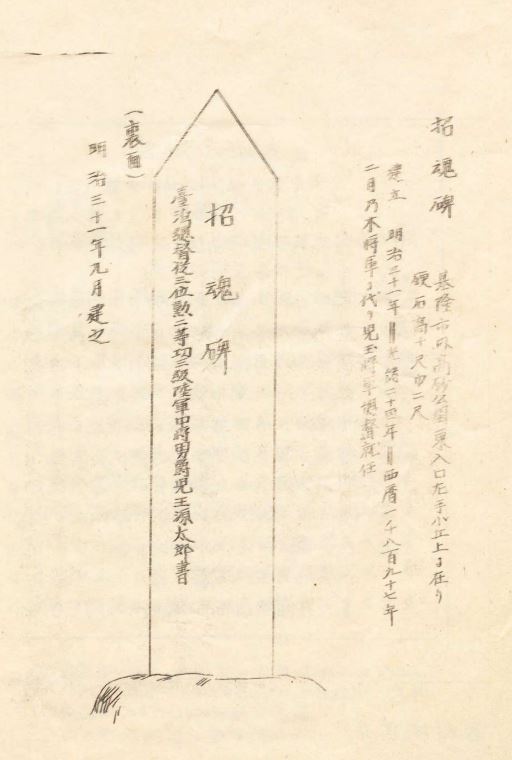 招魂碑
基隆市外高砂公園裏入口左手小丘上ニ在リ
硬石高十尺巾二尺
建立 明治三十一年 光緒二十四年 西暦一千八百九十七年
二月乃木将軍ニ代リ児玉将軍総督就任
招魂碑
臺湾総督従三位勲二等功三級陸軍中将男爵児玉源太郎書
(裏面)
明治三十一年九月建之